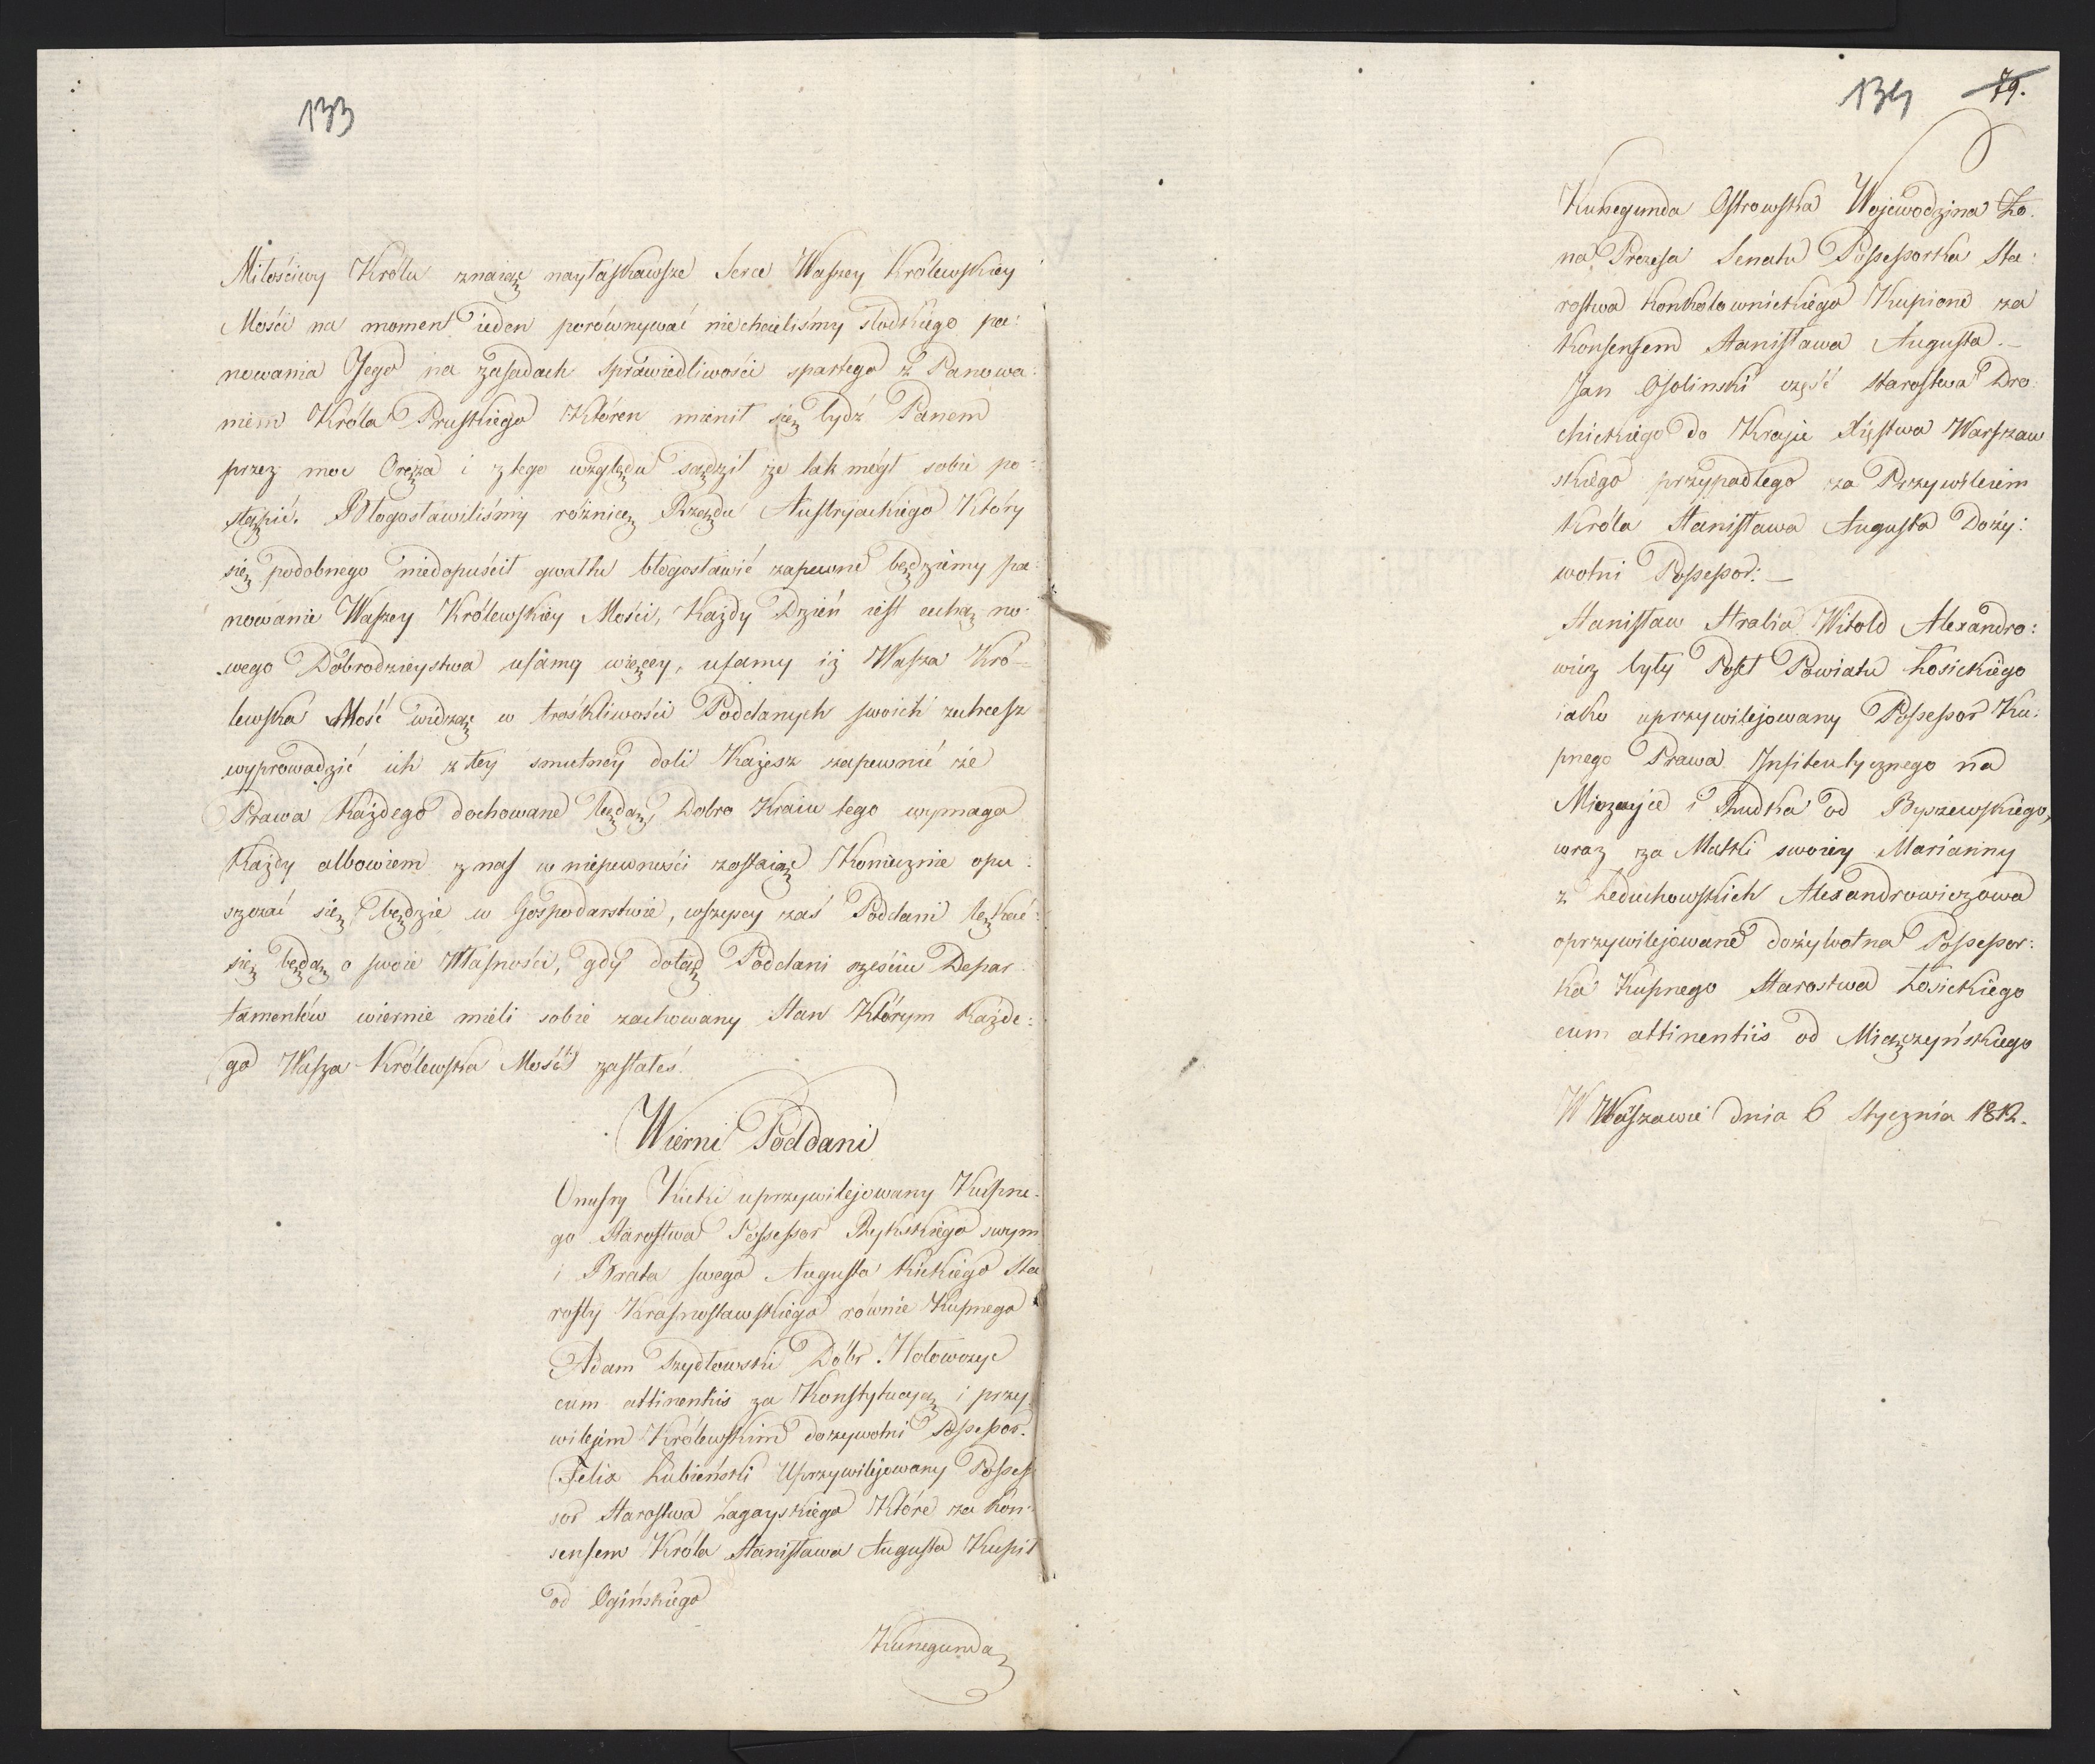 133
Miłościwy Królu znaiąc nayłaskawsze Serce Waszey Królewskiey
Mości na moment ieden porównywać niechcieliśmy słodkiego pa:
nowania Jego na zasadach sprawiedliwości spartego z Panowa:
niem Króla Pruskiego Któren mienił się bydź Panem
przez moc Oręża i z tego względu sądził że tak mógł sobie po=
stąpić. Błogosławiliśmy różnicę Rządu Austryackiego Który
się podobnego niedopuścił gwałtu błogosławić zapewne będziemy pa:
nowanie Waszey Królewskiey Mości, Każdy Dzień iest cechą no-
wego Dobrodzieystwa ufamy więcey, ufamy iż Wasza Kró=
lewska Mość widząc w troskliwości Poddanych swoich zechcesz
wyprowadzić ich z tey smutney doli Każesz zapewnić że
Prawa Każdego dochowane będą, Dobro Kraiu tego wymaga
Każdy albowiem z nas w niepewności zostaiąc Koniecznie opu:
szczać się będzie w Gospodarstwie, wszyscy zaś Poddani lękać:
się będą o swoie Własności, gdy dotąd Poddani sześciu Depar
tamentów wiernie mieli sobie zachowany Stan Którym Każde:
go Wasza Królewska Mość zastałeś.
Wierni Poddani
Onufry Kicki uprzywilejowany Kupne-
go Starostwa Possessor Rykskiego swym
i Brata swego Augusta Kickiego Sta
rosty Krasnostawskiego równie Kupnego
Adam Szydłowski Dobr Hołowczyc
cum attinentiis za Konstytucyą i przy
wilejem Królewskim dozywotni Possessor.
Felix Łubieński Uprzywilejowany Posses
sor Starostwa Zagayskiego Które za kon-
sensem Króla Stanisława Augusta Kupił
od Ogińskiego
Kunegunda
134 79.
Kunegunda Ostrowska Wojewodzina Żo.
na Prezesa Senatu Possessorka Sta:
rostwa Kupione za
Konsensem Stanisława Augusta.—
Jan Osolinski część Starostwa Dro:
chickiego do Kraju Xięstwa Warszaw
skiego przypadłego za Przywileiem
Króla Stanisława Augusta Doży:
wotni Possessor:—
Stanisław Witold Alexandro:
wicz były Poseł Powiatu Łosickiego
iako uprzywilejowany Possessor Ku:
pnego Prawa na
i Rudka od Byszewskiego,
wraz za Matki swoiey Marianny
z Leduchowskich Alexandrowiczowa
oprzywilejowane dożywotna Possessor:
ka Kupnego Starostwa Łosickiego
cum attinentiis od Miączyńskiego
W Waszawie dnia 6 Stycznia 1812.